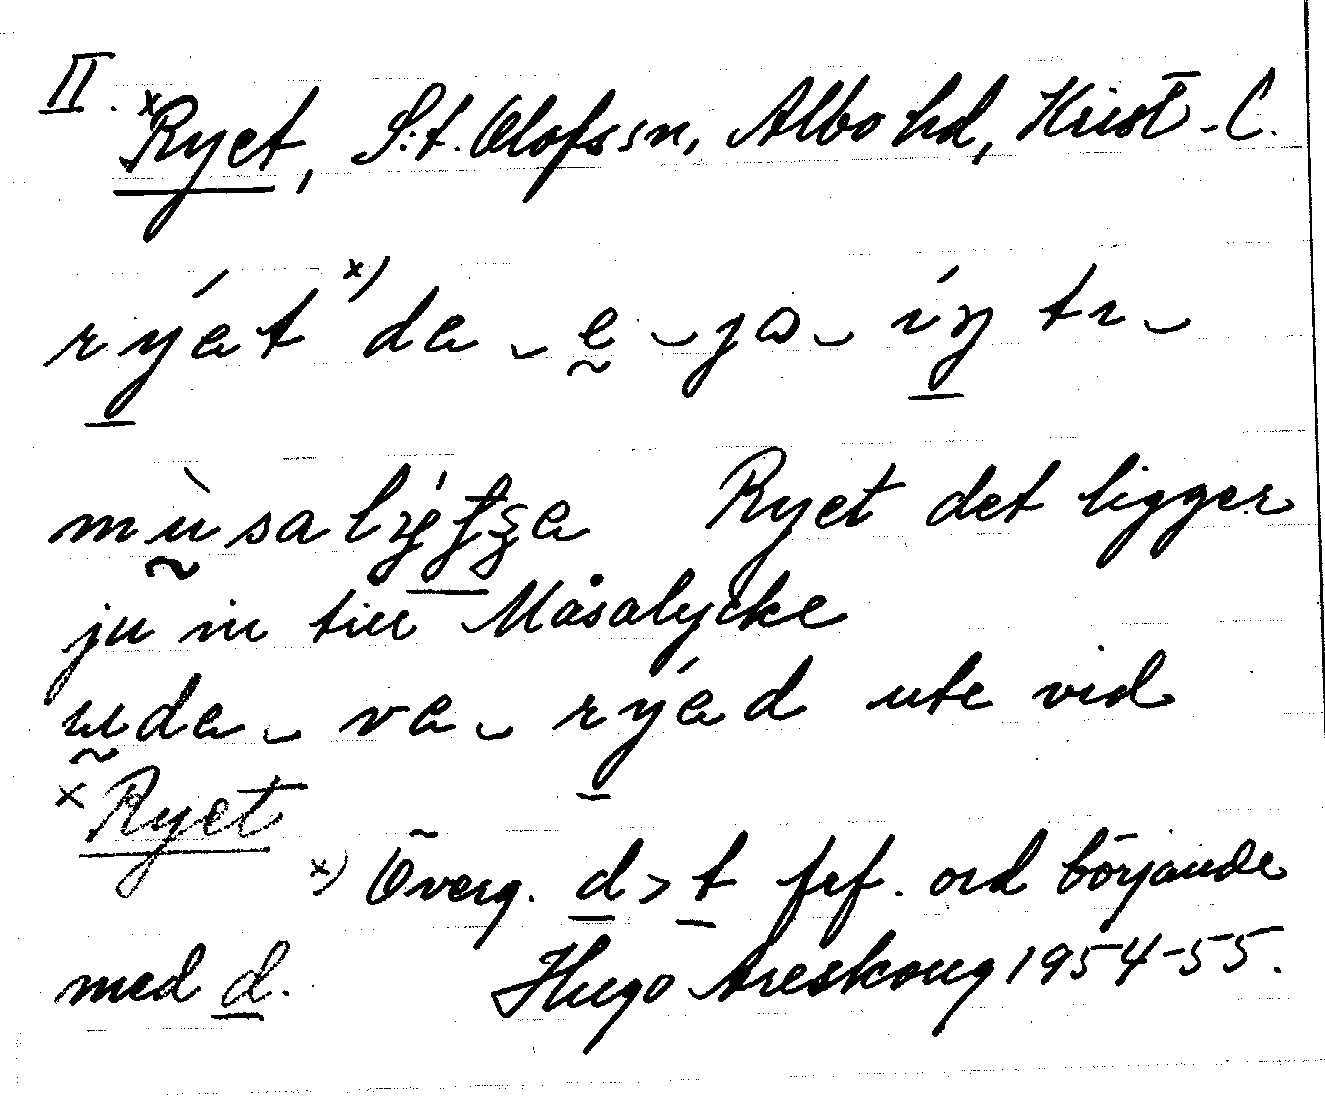 II. ˣRyet, S:t. Olofs sn, Albo hd, Krist. C.
rýet ˣ⁾ de ‿ e ‿ ja ‿ íŋ te ‿
Ryet det ligger
ju in till Måsalycke
ude ‿ ve ‿ rýed ute vid
ˣRyet
ˣ⁾ Överg. d > t frf. ord börjande
med d. Hugo Areskoug 1954-55.